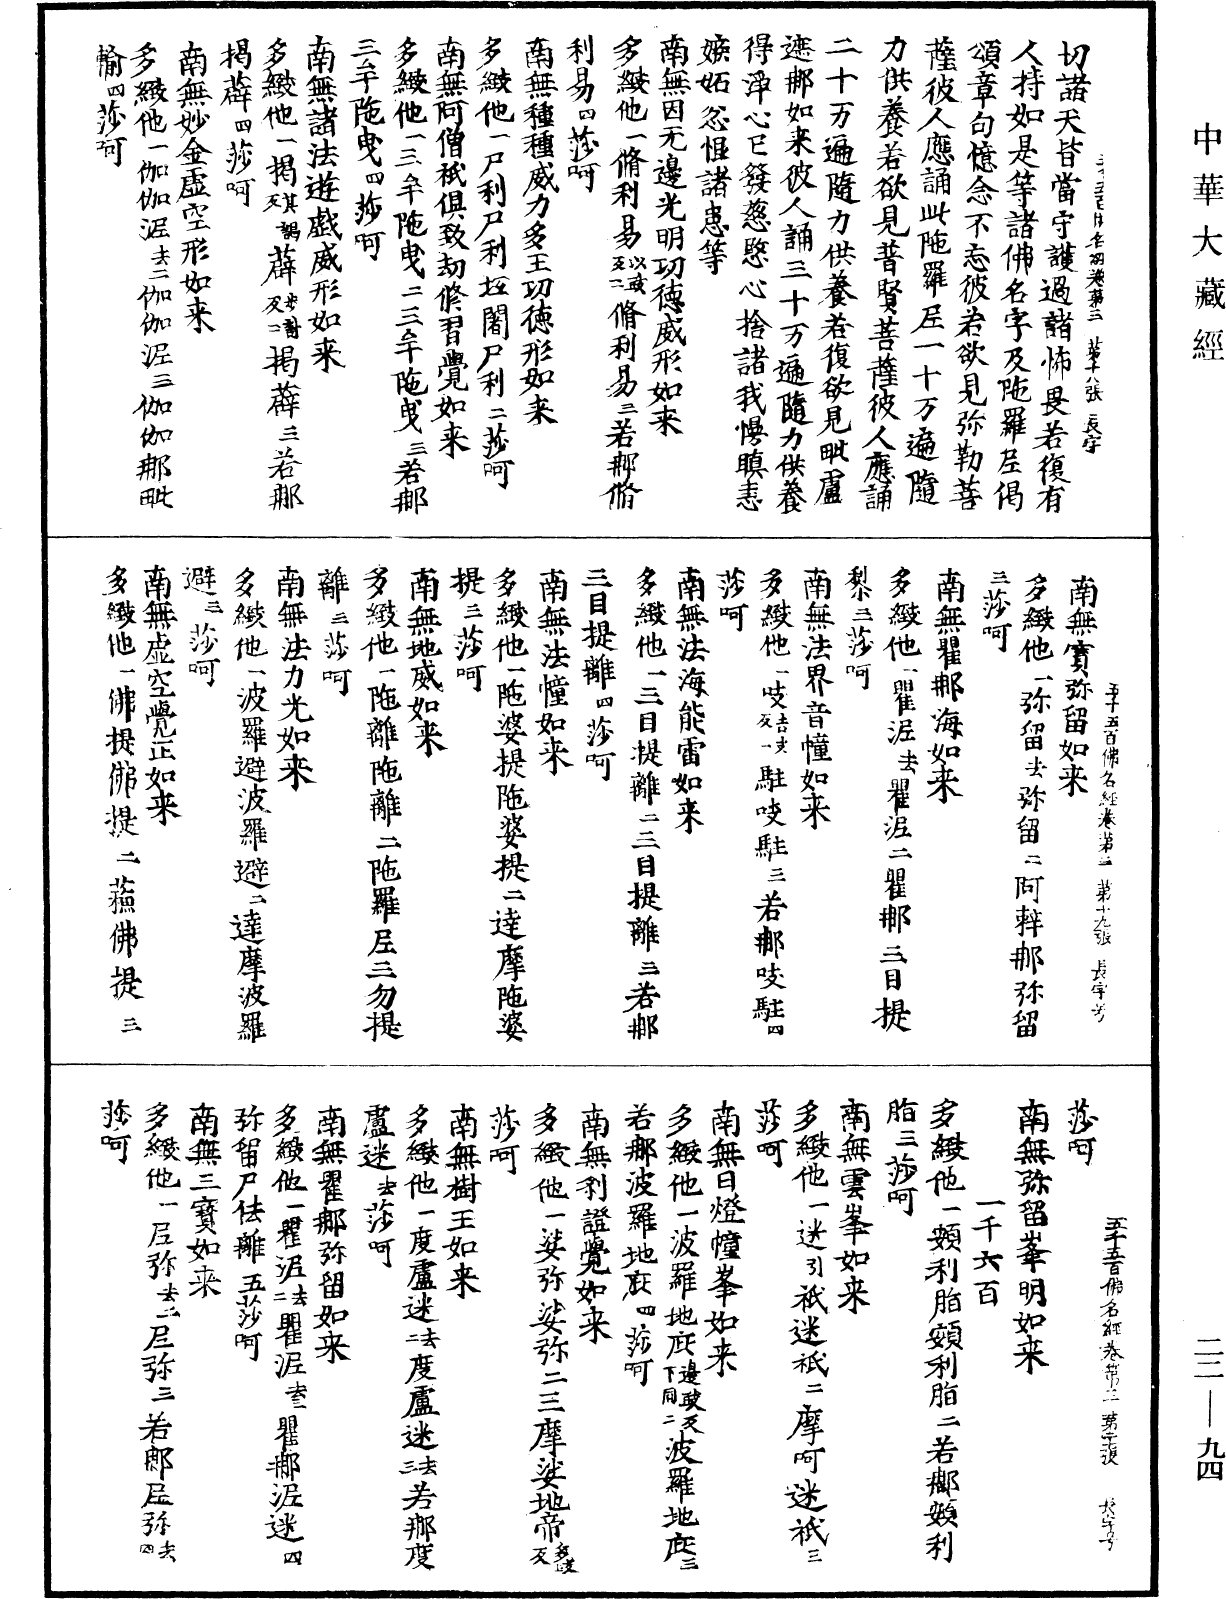 中華大藏經
二二—九四
五千五百佛名經卷第三 第十八張 長字
切諸天皆當守護過諸怖畏若復有
人持如是等諸佛名字及陁羅尼偈
頌章句憶念不忘彼若欲見弥勒菩
薩彼人應誦此陁羅尼一十万遍隨
力供養若欲見普賢菩薩彼人應誦
二十万遍隨力供養若復欲見毗盧
遮那如来彼人誦三十万遍隨力供養
得淨心已發慈愍心捨諸我慢瞋恚
嫉妬忿恨諸恚等
南無因无邊光明功德威形如来
多緻他一脩利易以豉反二脩利易三若那脩
利易四莎呵
南無種種威力多王功德形如来
多緻他一尸利尸利坻闍尸利二莎呵
南無阿僧祇俱致劫脩習覺如来
多緻他一三牟陁曳二三牟陁曳三若那
三牟陁曳四莎呵
南無諸法遊戲威形如来
多緻他一揭其謁反薜步計反二揭薜三若那
揭薜四莎呵
南無妙金虚空形如来
多緻他一伽伽泥去二伽伽泥三伽伽那毗
輸四莎呵
五千五百佛名經卷第三 第十九張 長字号
南無寳弥留如来
多緻他一弥留去弥留二阿鞞那弥留
三莎呵
南無瞿那海如来
多緻他一瞿泥去瞿泥二瞿那三目提
梨三莎呵
南無法界音幢如来
多緻他一吱吉支反一駐吱駐三若那吱駐四
莎呵
南無法海能雷如来
多緻他一三目提離二三目提離三若那
三目提離四莎呵
南無法幢如来
多緻他一陁婆提陁婆提二達摩陁婆
提三莎呵
南無地威如来
多緻他一陁離陁離二陁羅尼三勿提
離三莎呵
南無法力光如来
多緻他一波羅避波羅避二達摩波羅
避三莎呵
南無虚空覺正如来
多緻他一佛提佛提二蘓佛提三
五千五百佛名經卷第三 第二十張 長字号
莎呵
南無弥留峯明如来
一千六百
多緻他一頞利脂頞利脂二若那頞利
脂三莎呵
南無雲峯如来
多緻他一迷引祇迷祇二摩呵迷祇三
莎呵
南無日燈幢峯如来
多緻他一波羅地庇邊豉反下同二波羅地庇三
若那波羅地庇四莎呵
南無利證覺如来
多緻他一娑弥娑弥二三摩娑地帝多豉反
莎呵
南無樹王如来
多緻他一度盧迷二去度盧迷三去若那度
盧迷去莎呵
南無瞿那弥留如来
多緻他一瞿泥二去瞿泥去三瞿那泥迷四
弥留尸佉離五莎呵
南無三寳如来
多緻他一尼弥去二尼弥三若那尼弥去四
莎呵